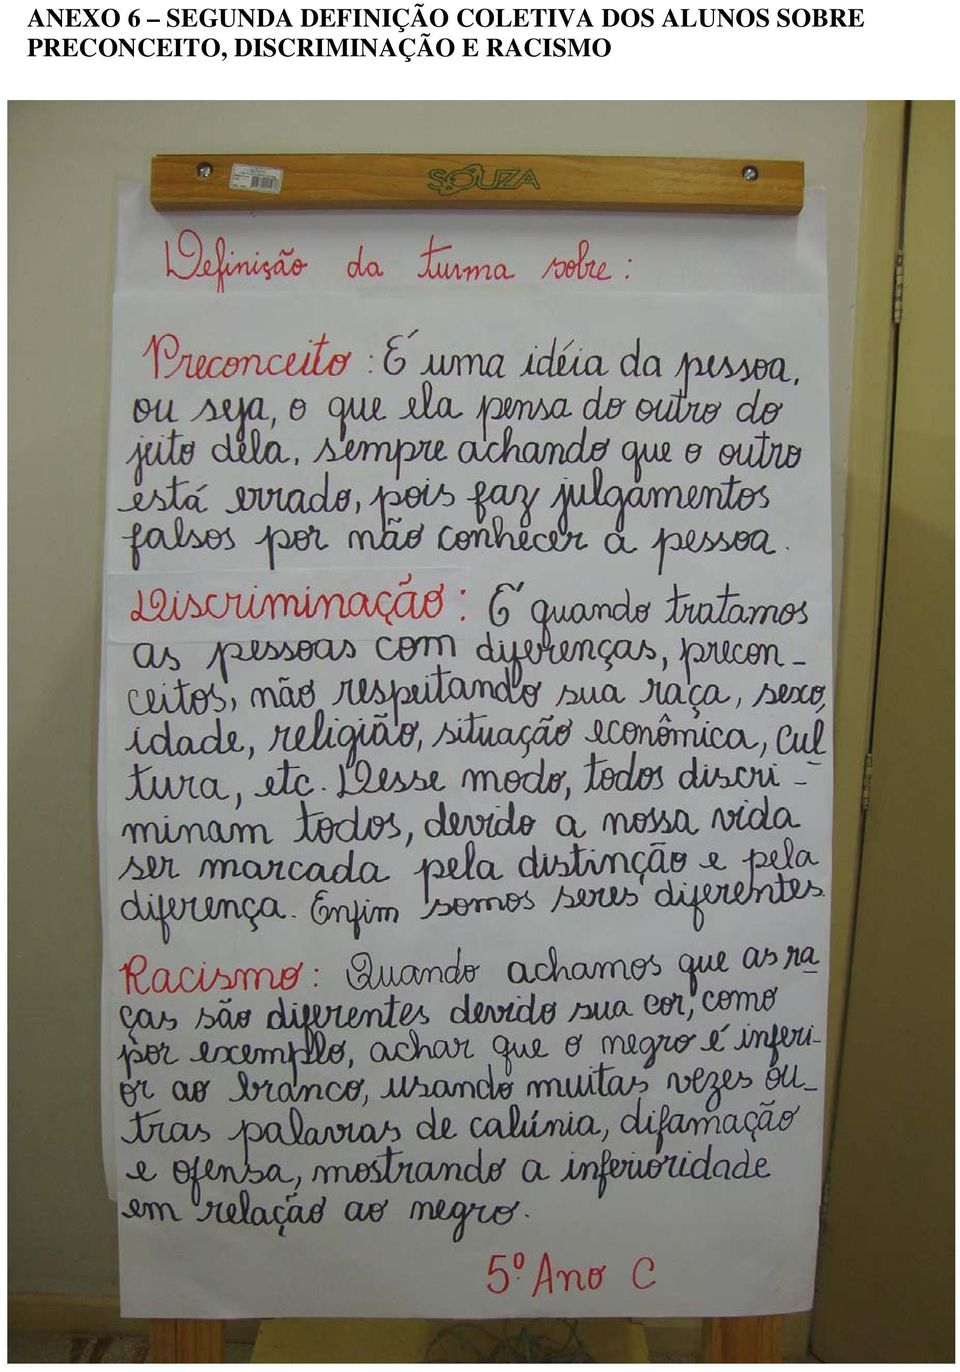 ANEXO 6 – SEGUNDA DEFINIÇÃO COLETIVA DOS ALUNOS SOBRE
PRECONCEITO, DISCRIMINAÇÃO E RACISMO
SOUZA
Definição da turma sobre:
Preconceito: É uma idéia da pessoa,
ou seja, o que ela pensa do outro do
jeito dela, sempre achando que o outro
está errado, pois faz julgamentos
falsos por não conhecer a pessoa.
Discriminação: É quando tratamos
as pessoas com diferenças, precon-
ceitos, não respeitando sua raça, sexo,
idade, religião, situação econômica, cul
tura, etc. Desse modo, todos discri-
minam todos, devido a nossa vida
ser marcada pela distinção e pela
diferença. Enfim somos seres diferentes.
Racismo: Quando achamos que as ra
ças são diferentes devido sua cor, como
por exemplo, achar que o negro é inferi-
or ao branco, usando muitas vezes ou-
tras palavras de calúnia, difamação
e ofensa, mostrando a inferioridade
em relação ao negro.
5º Ano C